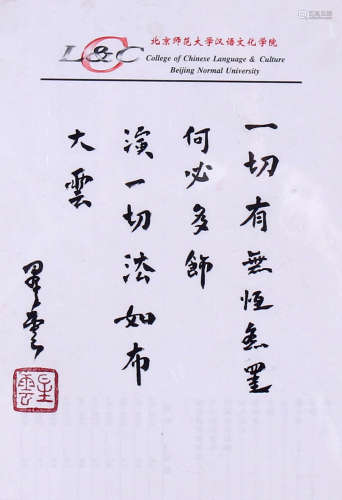 北京师范大学汉语文化学院
L&C College of Chinese Language & Culture
Beijing Normal University
一切有無恆无罣
何必多飾
演一切法如布
大雲
星雲
星雲